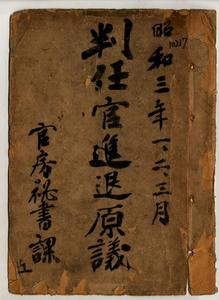 昭和三年一、二、三月
10217
判任官進退原議
官房秘書課